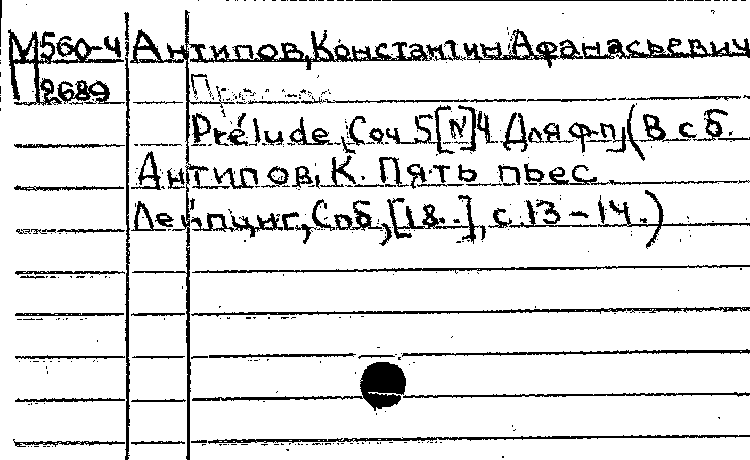 М560-4 Антипов, Константин Афанасьевич
П2689
Prélude, Соч 5 [N]4 Для ф.п. (В сб.
Антипов, К. Пять пьес.
Лейпциг, Спб, [18..], с. 13-14.)